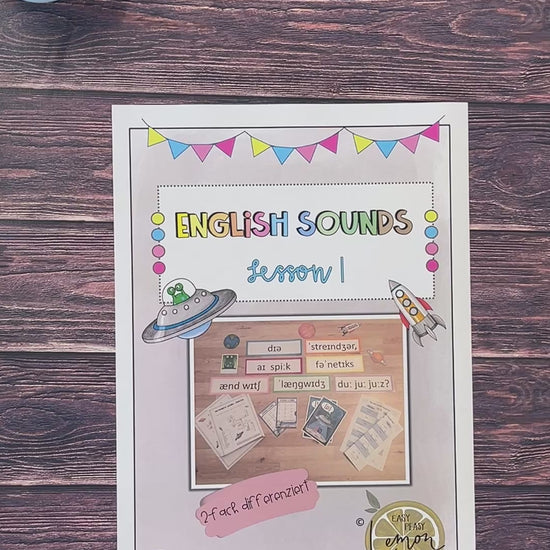 ENGLISH SOUNDS
Lesson 1
dɪə
ˈstreɪndʒər,
aɪ spiːk
fəˈnetɪks
ænd wɪtʃ
ˈlæŋgwɪdʒ
duː juː juːz?
2-fach differenziert
©
EASY
PEASY
Lemon